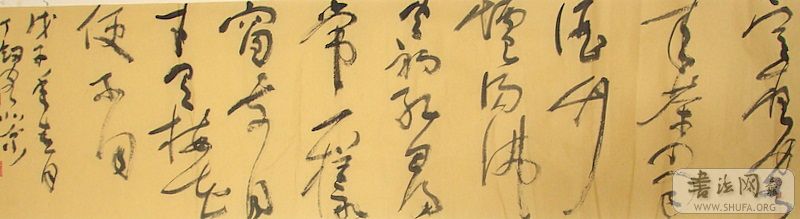 寒夜客
来茶当
酒竹
炉湯沸
火初红寻
常一樣
窗前月
才有梅花
便不同
戊子年春月
书法网
WWW.SHUFA.ORG